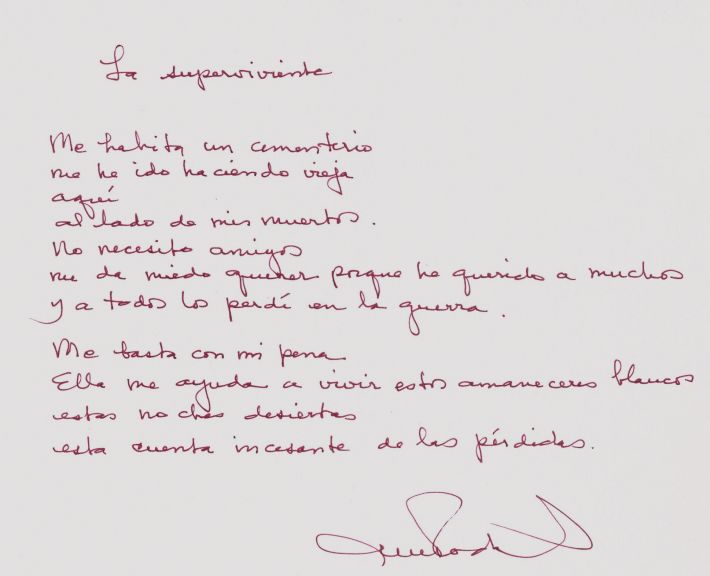 La superviviente
Me habita un cementerio
me he ido haciendo vieja
aquí
al lado de mis muertos.
No necesito amigos
me da miedo querer porque he querido a muchos
y a todos los perdí en la guerra.
Me basta con mi pena
Ella me ayuda a vivir estos amaneceres blancos
estas noches desiertas
esta cuenta incesante de las pérdidas.